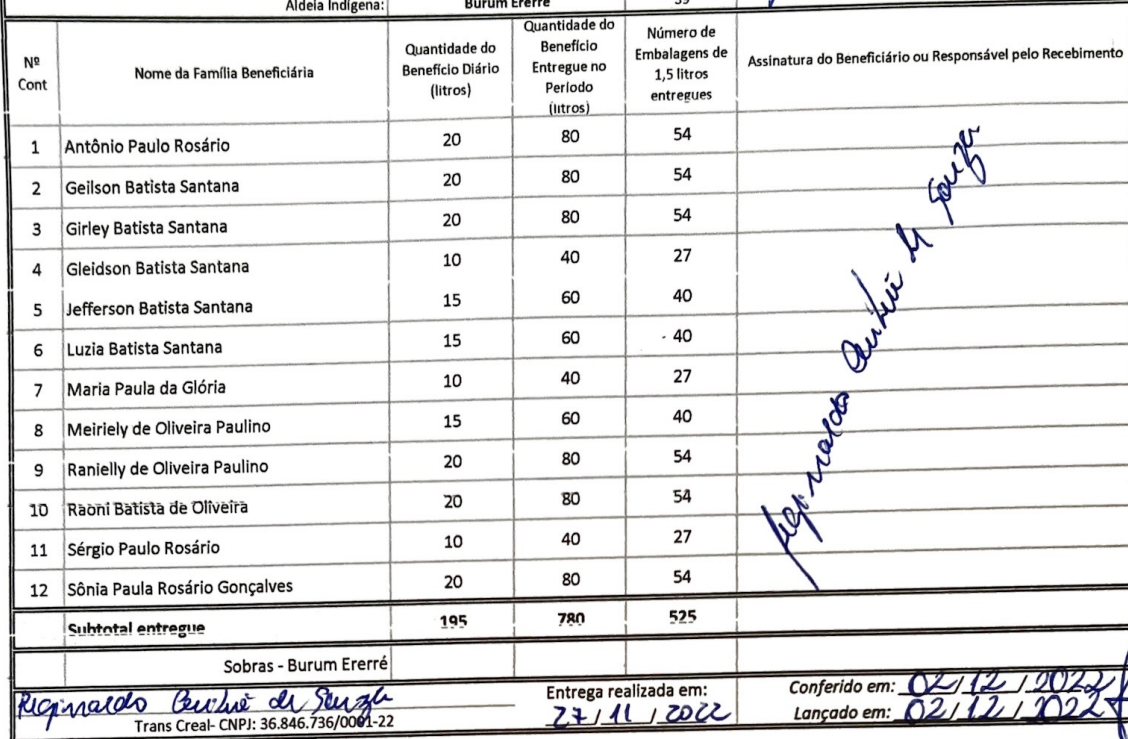 Aldeia Indígena: Burum Ererré 39
Nº Cont
Nome da Família Beneficiária
Quantidade do Benefício Diário (litros)
Quantidade do Benefício Entregue no Período (litros)
Número de Embalagens de 1,5 litros entregues
Assinatura do Beneficiário ou Responsável pelo Recebimento
1 Antônio Paulo Rosário 20 80 54
2 Geilson Batista Santana 20 80 54
3 Girley Batista Santana 20 80 54
4 Gleidson Batista Santana 10 40 27
5 Jefferson Batista Santana 15 60 40
6 Luzia Batista Santana 15 60 40
7 Maria Paula da Glória 10 40 27
8 Meiriely de Oliveira Paulino 15 60 40
9 Ranielly de Oliveira Paulino 20 80 54
10 Raoni Batista de Oliveira 20 80 54
11 Sérgio Paulo Rosário 10 40 27
12 Sônia Paula Rosário Gonçalves 20 80 54
Subtotal entregue 195 780 525
Sobras - Burum Ererré
Reginaldo de Souza
Trans Creal- CNPJ: 36.846.736/0001-22
Entrega realizada em:
27/11/2022
Conferido em: 02/12/2022
Lançado em: 02/12/2022